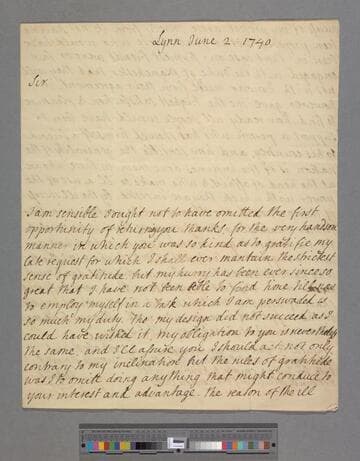 Lynn June 2. 1740
Sir
I am sensible I ought not to have omitted the first
opportunity of returning you thanks for the very handsom
manner in which you was so kind as to gratifie my
late request for which I shall ever mantain the strictest
sense of gratitude, but my hurry has been ever since so
great that I have not been able to find time till
to employ myself in a Task which I am perswaded is
so much my duty. Tho' my design did not succeed as I
could have wished it, my obligation to you is nevertheless
the same, and I'll assure you I should act not only
contrary to my inclination but the rules of gratitude
was I to omitt doing anything that might conduce to
your interest and advantage. The reason of the ill